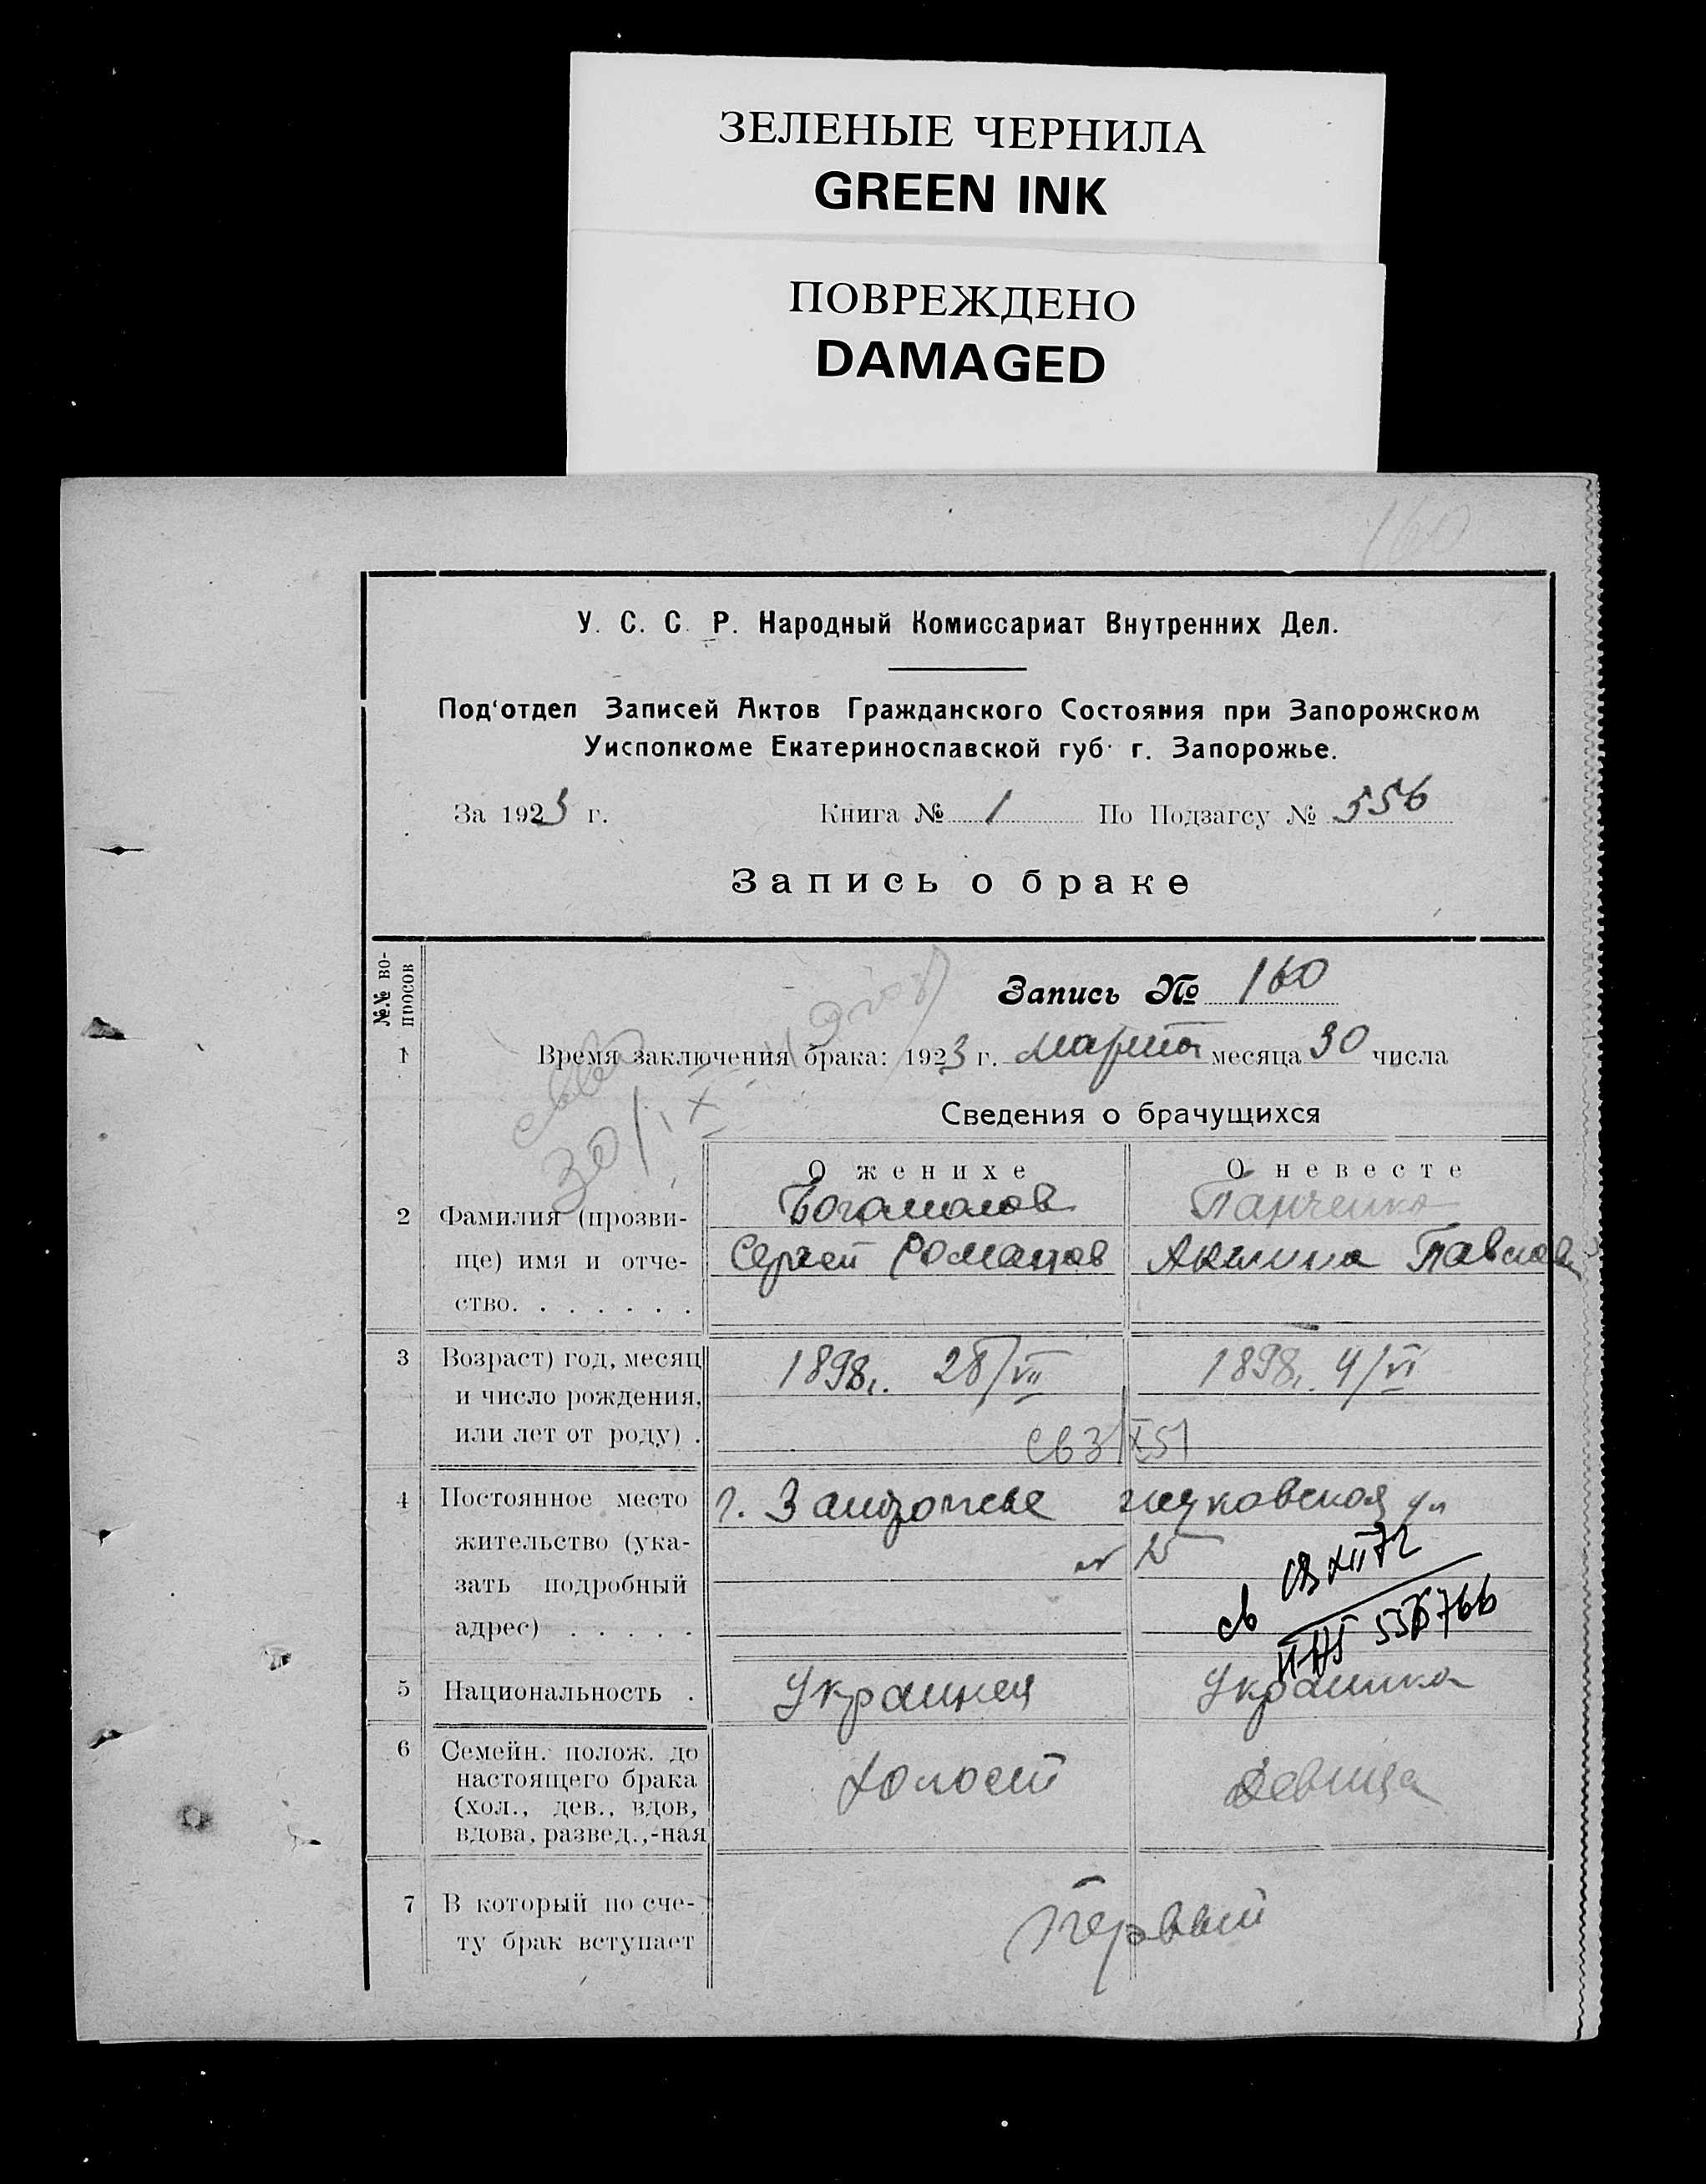 ЗЕЛЕНЫЕ ЧЕРНИЛА
GREEN INK
ПОВРЕЖДЕНО
DAMAGED
160
У. С. С. Р. Народный Комиссариат Внутренних Дел.
Под'отдел Записей Актов Гражданского Состояния при Запорожском
Уисполкоме Екатеринославской губ. г. Запорожье.
За 1923 г. Книга № 1 По Подзагсу № 556
Запись о браке
№.№ во-
просов
Запись № 160
1 Время заключения брака: 1923 г. марта месяца 30 числа
30/IX
Сведения о брачущихся
О женихе О невесте
2 Фамилия (прозви- Богомолов Панченко
ще) имя и отче- Сергей Романов Акилина Павлов
ство. . . . . . .
3 Возраст) год, месяц 1898г. 28/VII 1898г. 4/VI
и число рождения,
или лет от роду) . св 3/X 51
4 Постоянное место г. Запорожье ул
жительство (ука-
зать подробный
адрес) . . . . . св
5 Национальность . Украинец Украинка
6 Семейн. полож. до
настоящего брака Холост Девица
(хол., дев., вдов,
вдова, развед.,-ная
7 В который по сче- Первый
ту брак вступает